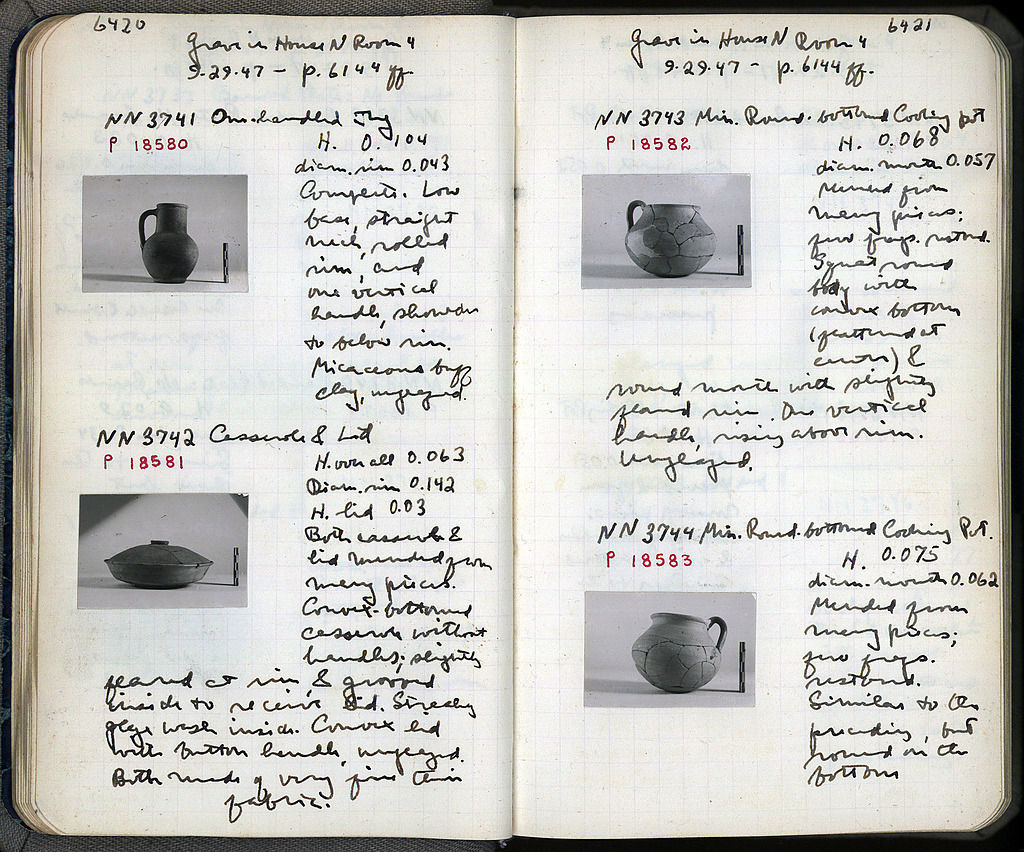 6420
Grave in House N Room 4
9.29.47 - p. 6144 ff.
NN 3741 One-handled Jug
P 18580
H. 0.104
diam. rim 0.043
Complete. Low
base, straight
neck, rolled
rim, and
one vertical
handle, shoulder
to below rim.
Micaceous buff
clay, unglazed.
NN 3742 Casserole & Lid
P 18581
H. overall 0.063
Diam. rim 0.142
H. lid 0.03
Both casserole &
lid mended from
many pieces.
Convex-bottomed
casserole without
handles; slightly
flared at rim & grooved
inside to receive lid. Streaky
glaze wash inside. Convex lid
with button handle, unglazed.
Both made of very fine thin
fabric.
6421
Grave in House N Room 4
9.29.47 - p. 6144 ff.
NN 3743 Min. Round-bottomed Cooking pot
P 18582
H. 0.068
diam. mouth 0.057
Mended from
many pieces;
few frags. restored.
Squat round
body with
convex bottom
(flattened at
center) &
round mouth with slightly
flared rim. One vertical
handle, rising above rim.
Unglazed.
NN 3744 Min. Round-bottomed Cooking Pot.
P 18583
H. 0.075
diam. mouth 0.062
Mended from
many pieces;
few frags.
restored.
Similar to the
preceding, but
round on the
bottom